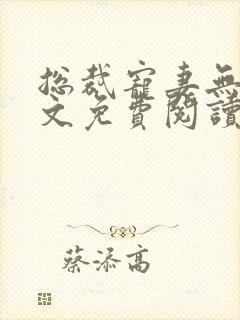 总裁寵妻無
文免費閱讀
蔡添高